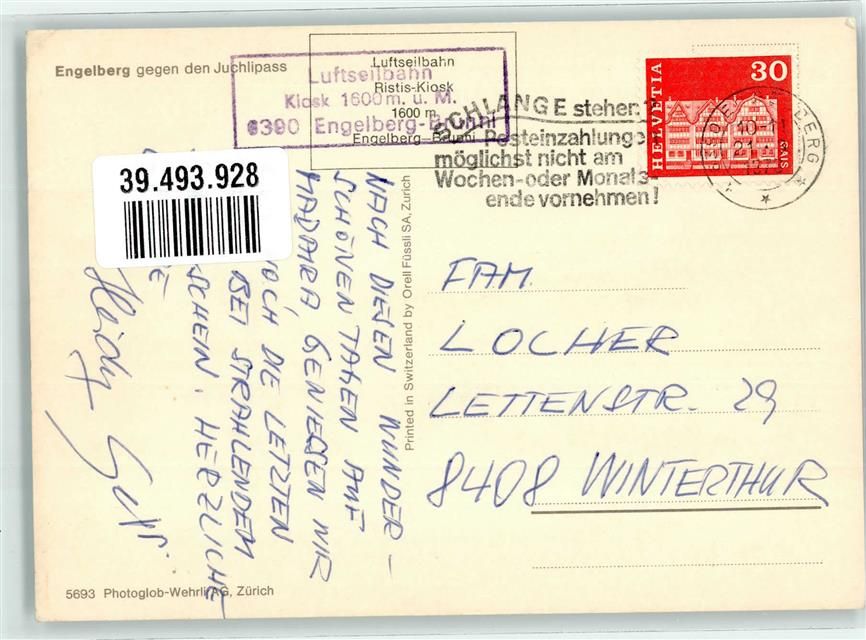 Engelberg gegen den Juchlipass
Luftseilbahn
Kiosk 1600 m. ü. M.
6390 Engelberg-Brunni
Luftseilbahn
Ristis-Kiosk
1600 m
Engelberg-Brunni
SCHLANGE stehen
Posteinzahlunge
möglichst nicht am
Wochen- oder Monats-
ende vornehmen!
HELVETIA
30
GAIS
39.493.928
NACH DIESEN WUNDER-
SCHÖNEN TAGEN AUF
MADARA, GENIESSEN WIR
NOCH DIE LETZTEN
BEI STRAHLENDEM
SCHEIN. HERZLICHE
Printed in Switzerland by Orell Füssli SA, Zürich
FAM.
LOCHER
LETTENSTR. 29
8408 WINTERTHUR
5693 Photoglob-Wehrli AG, Zürich